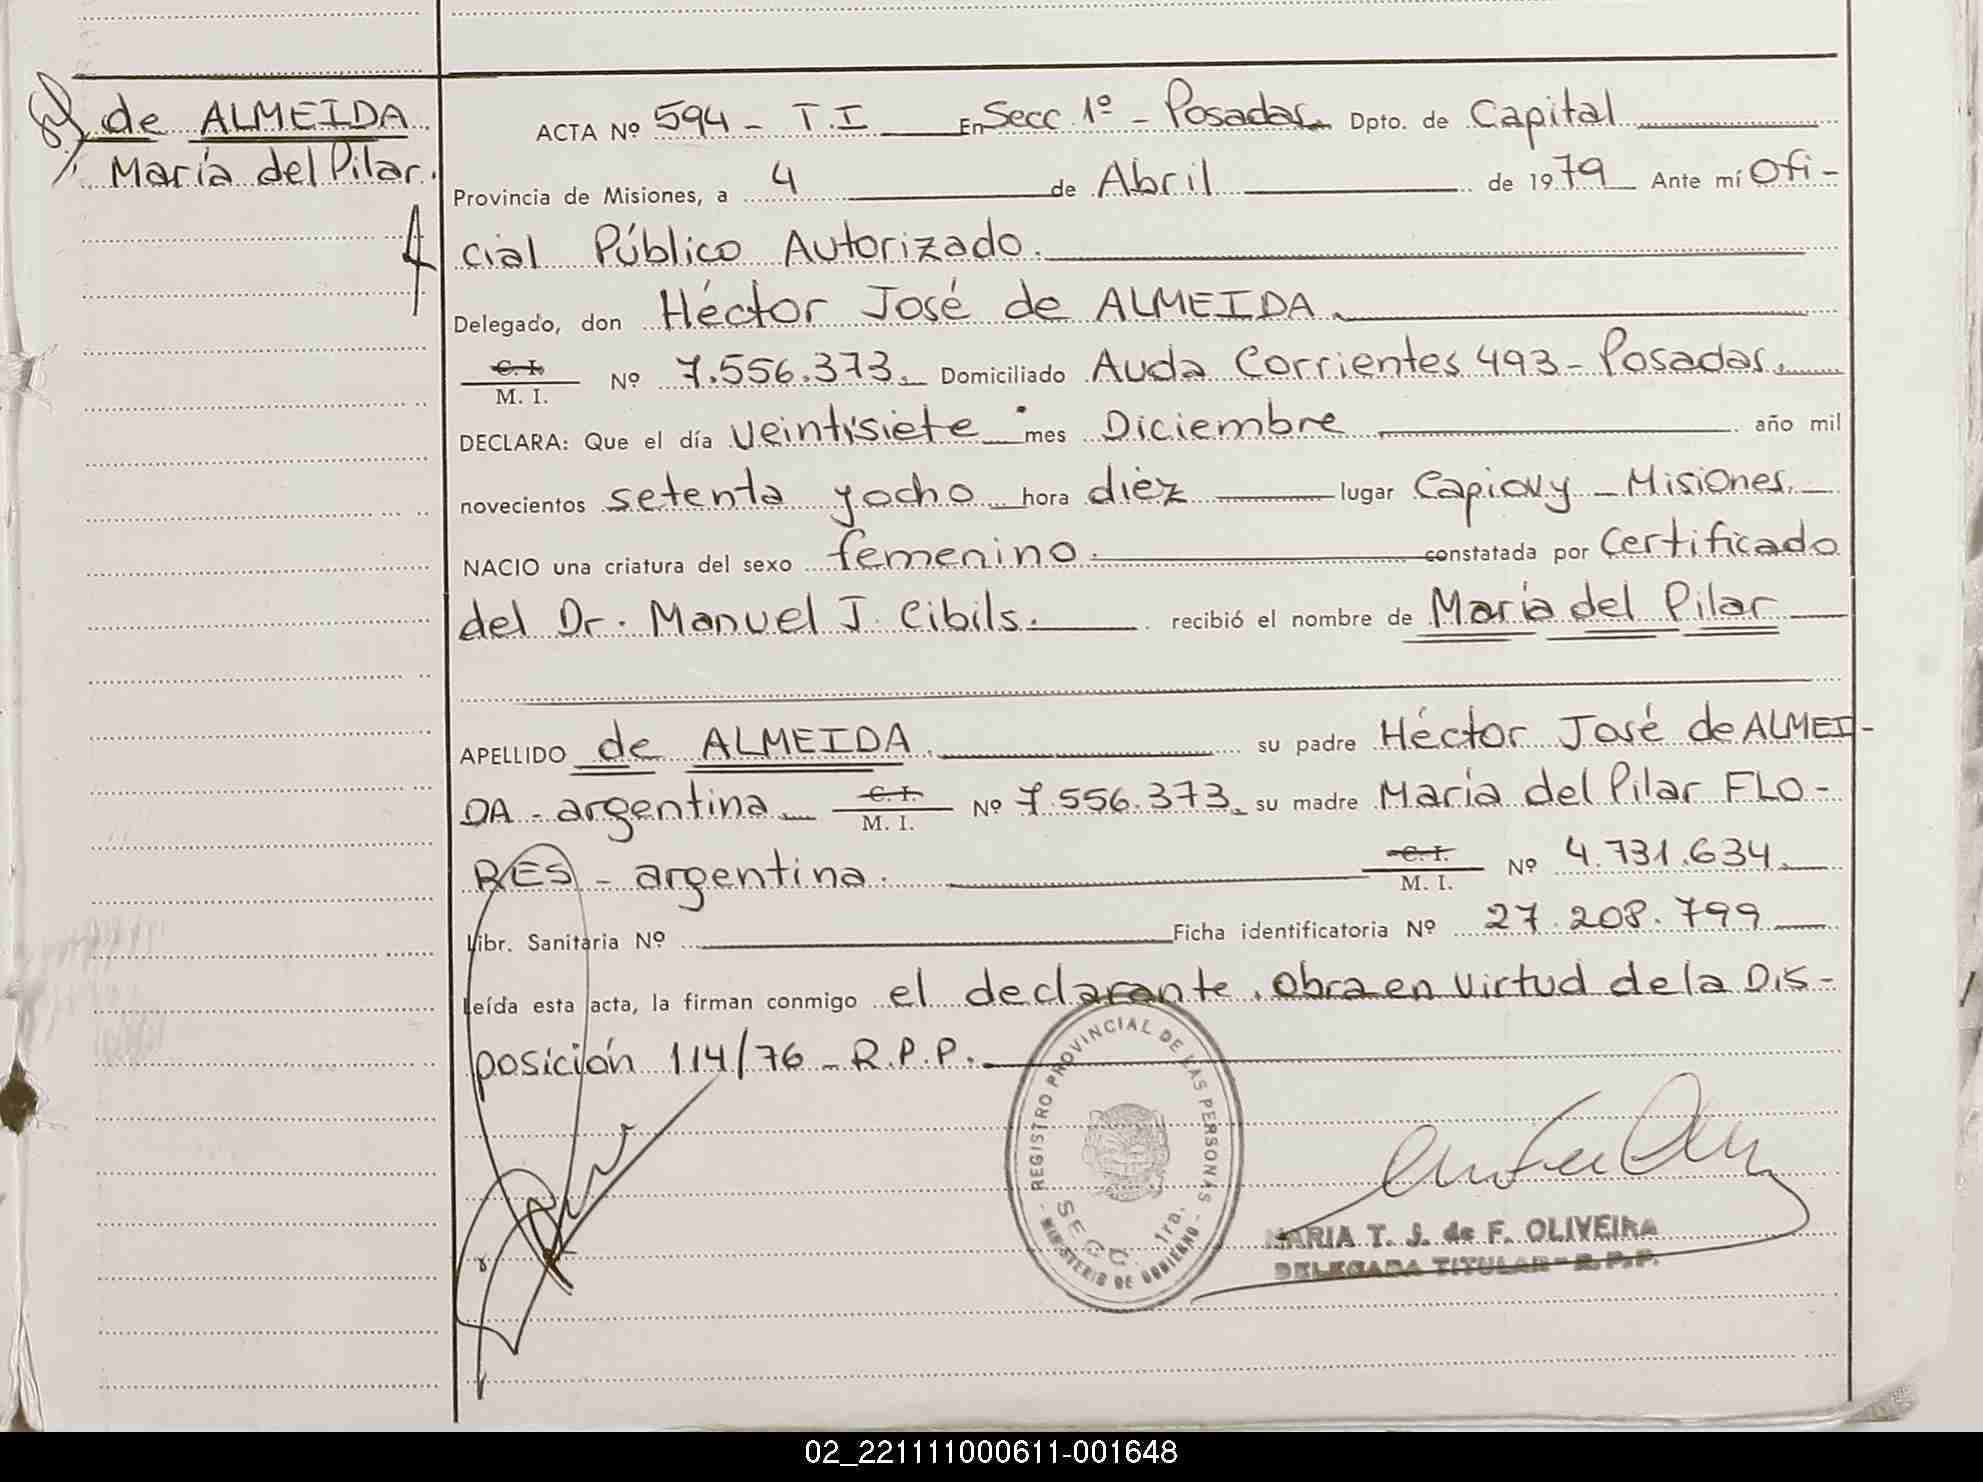 de ALMEIDA
María del Pilar.
ACTA Nº 594 - T.I En Secc 1º - Posadas. Dpto. de Capital
Provincia de Misiones, a 4 de Abril de 1979 Ante mí Ofi-
cial Público Autorizado.
Delegado, don Héctor José de ALMEIDA
C. I.
M. I. Nº 7.556.373. Domiciliado Avda Corrientes 493 - Posadas.
DECLARA: Que el día veintisiete mes Diciembre año mil
novecientos setenta y ocho hora diez lugar Capiovy - Misiones.
NACIO una criatura del sexo femenino. constatada por Certificado
del Dr. Manuel J. Cibils. recibió el nombre de María del Pilar
APELLIDO de ALMEIDA su padre Héctor José de ALMEI-
DA - argentina C. I.
M. I. Nº 7.556.373. su madre María del Pilar FLO-
RES - argentina. C. I.
M. I. Nº 4.731.634.
Libr. Sanitaria Nº Ficha identificatoria Nº 27.208.799
Leída esta acta, la firman conmigo el declarante. obra en virtud de la Dis-
posición 114/76 - R.P.P.
REGISTRO PROVINCIAL DE LAS PERSONAS
SECC. 1ra.
- MINISTERIO DE GOBIERNO -
MARIA T. J. de F. OLIVEIRA
DELEGADA TITULAR - R.P.P.
02_221111000611-001648